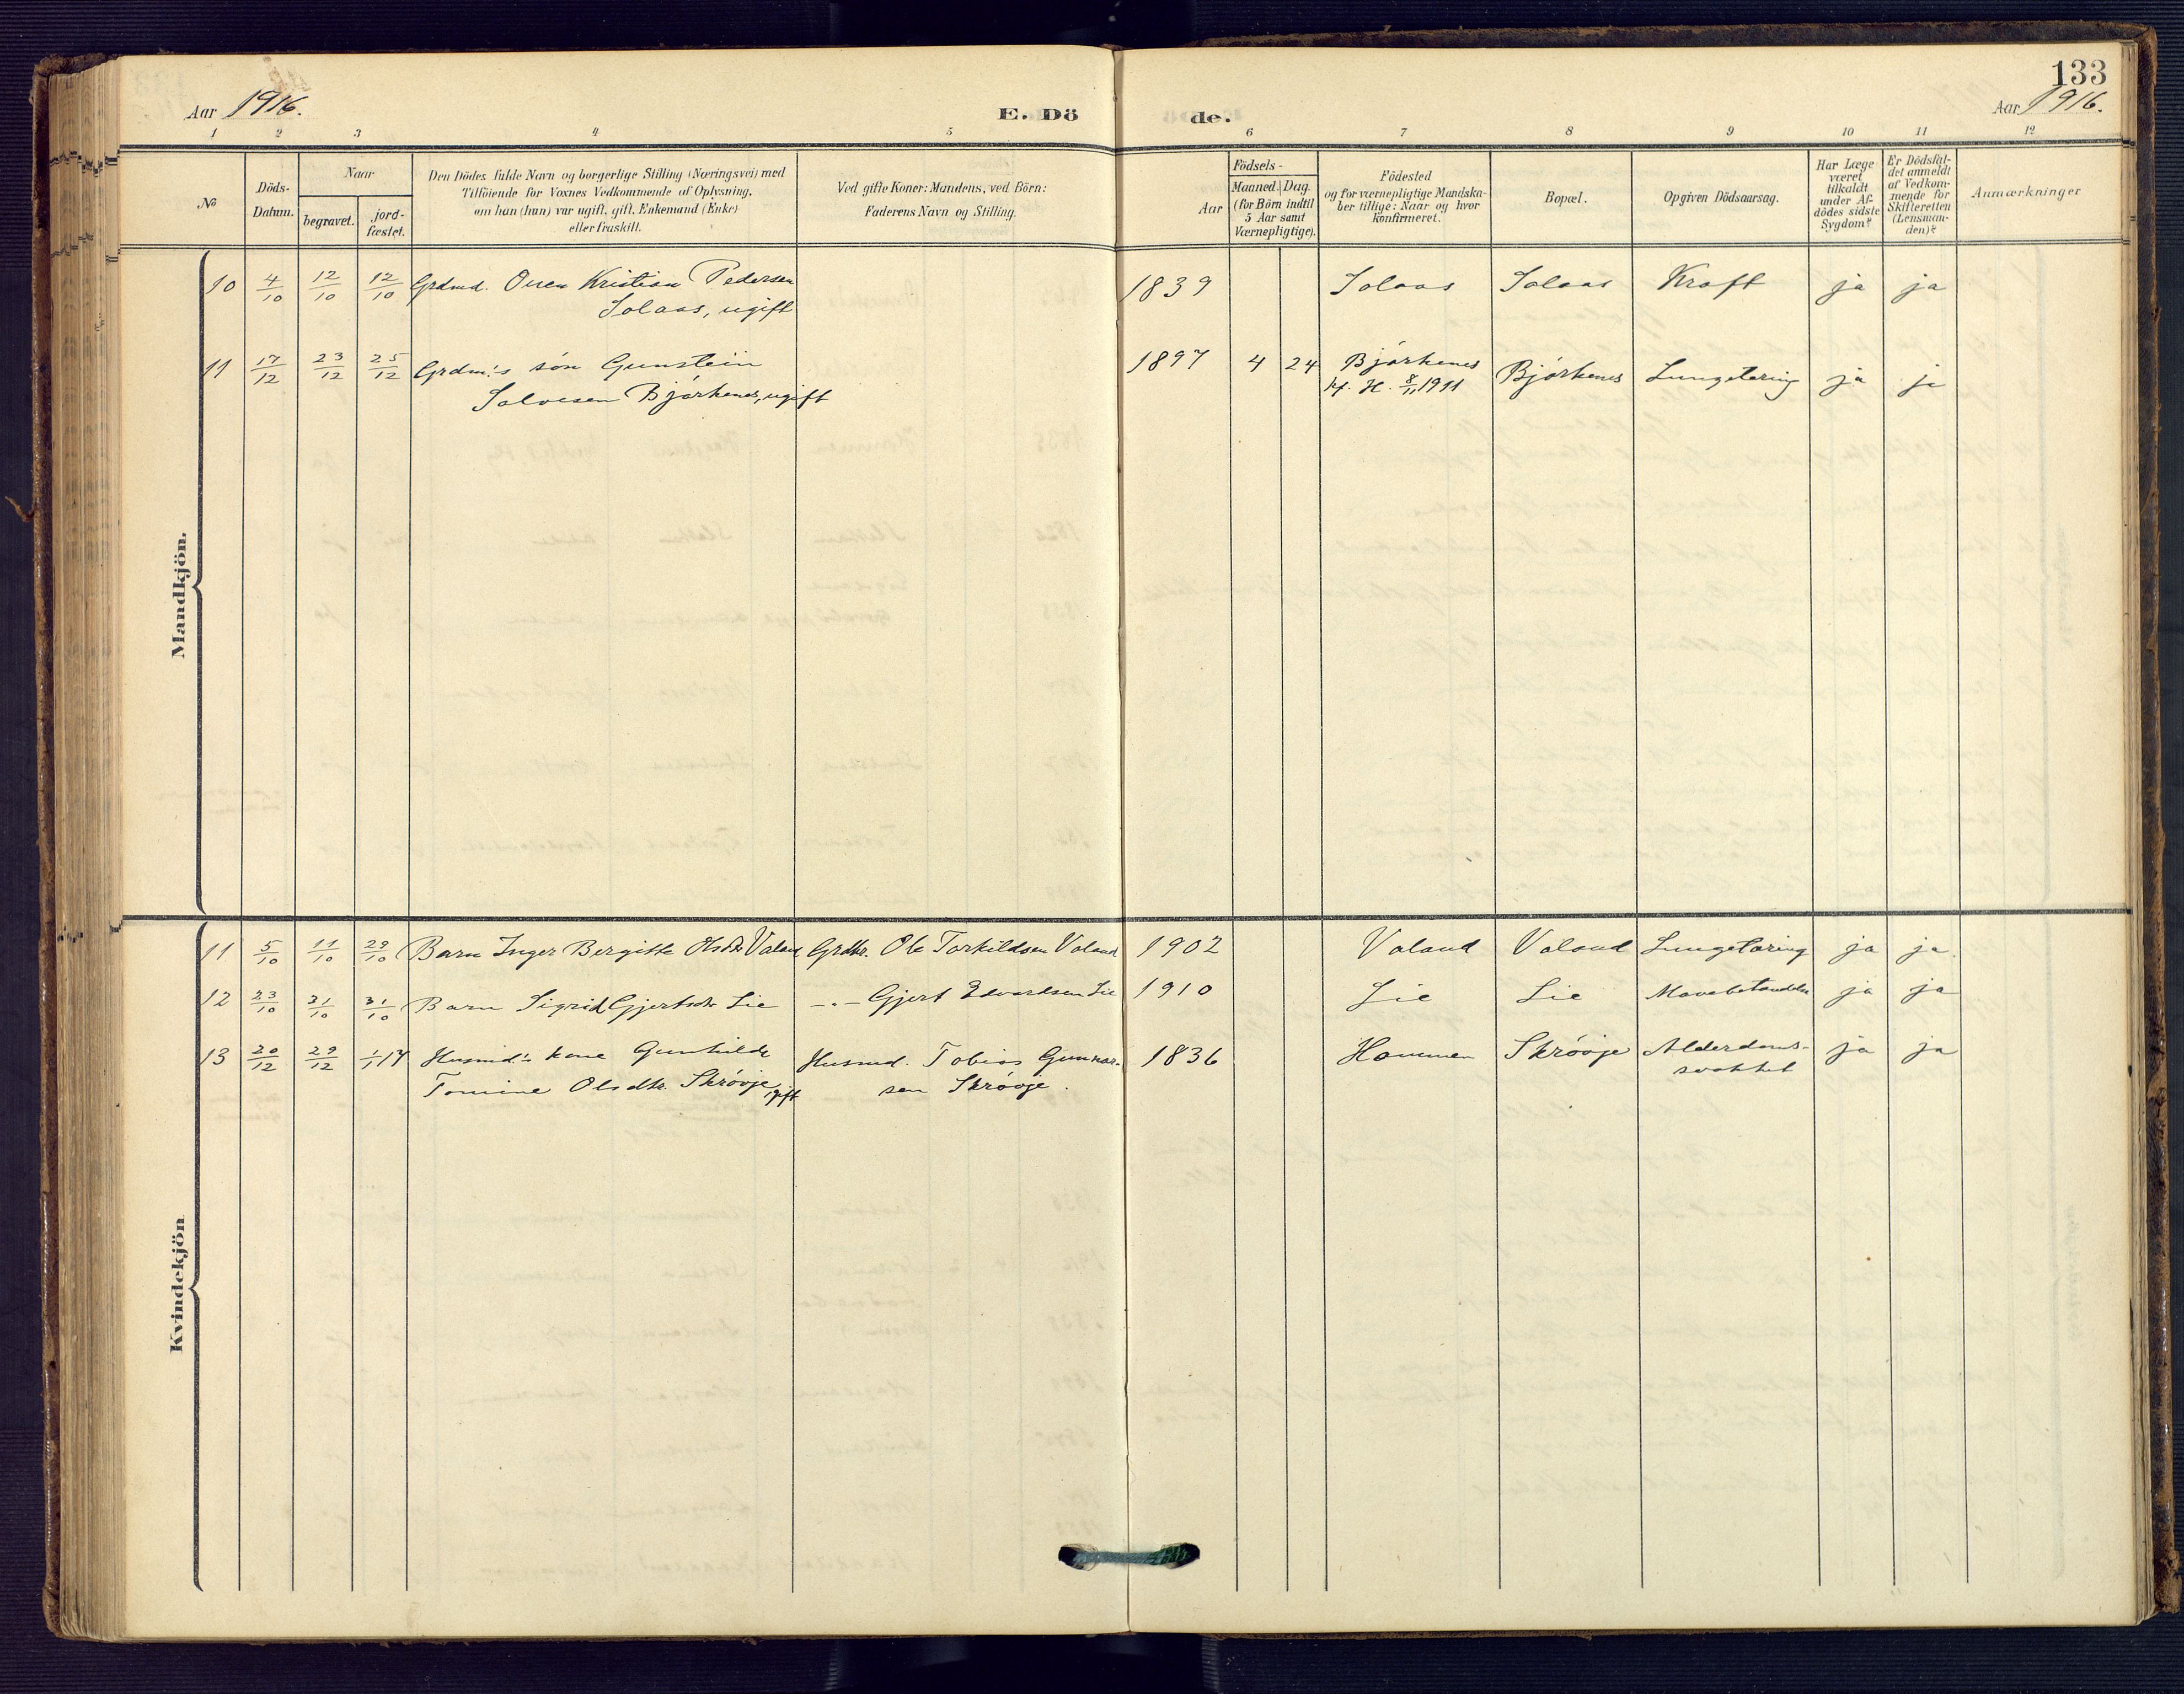 133
Aar 1916.
E. Dö
de.
Aar 1916.
1 2 3 4 5 6 7 8 9 10 11 12
No
Döds-
Datum.
Naar
begravet.
jord-
fæstet.
Den Dödes fulde Navn og borgerlige Stilling (Næringsvei) med
Tilföiende for Voxnes Vedkommende af Oplysning,
om han (hun) var ugift, gift, Enkemand (Enke)
eller fraskilt.
Ved gifte Koner: Mandens, ved Börn:
Faderens Navn og Stilling.
Aar
Födsels-
Maaned. Dag.
(for Börn indtil
5 Aar samt
Værnepligtige).
Födested
og for værnepligtige Mandska-
ber tillige: Naar og hvor
konfirmeret.
Bopæl.
Opgiven Dödsaarsag.
Har Læge
været
tilkaldt
under Af-
dödes sidste
Sygdom?
Er Dödsfal-
det anmeldt
af Vedkom-
mende for
Skifteretten
(Lensman-
den)?
Anmærkninger
Mandkjön.
10 4/10 12/10 12/10 Grdmd. Kristian Pedersen 1839 Solaas Solaas Kræft ja ja
Solaas, ugift
11 17/12 23/12 25/12 Grdm.'s sön Gunstein 1897 4 24 Björkenes Björkenes Lungetæring ja ja
Salvesen Björkenes, ugift 1911
Kvindekjön
11 5/10 11/10 29/10 Barn Inger Bergitte Olsdtr Valand Grdbr. Ole Torkildsen Valand 1902 Valand Valand Lungetæring ja ja.
12 23/10 31/10 31/10 Barn Sigrid Gjertsdtr Lie -"- Gjert Edvardsen Lie 1910 Lie Lie Mavebetændelse ja ja
13 20/12 29/12 1/1 17 Husmd.'s kone Gunhilde Husmd. Tobias Gunnar- 1836 Hommen Skröoje Alderdoms- ja ja
Tomine Olsdtr. Skröoje, gift sen Skröoje. svakhet